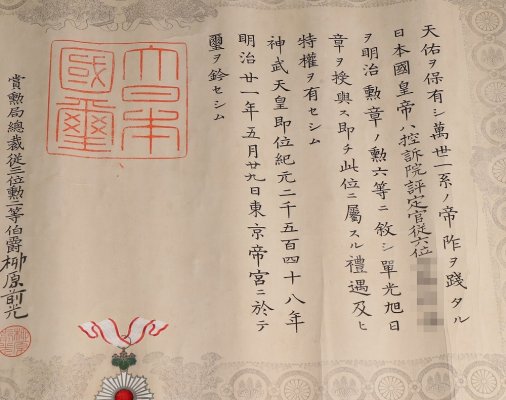 天佑ヲ保有シ萬世一系ノ帝阼ヲ踐タル
日本國皇帝ハ控訴院評定官從六位
ヲ明治勲章ノ勲六等ニ敘シ單光旭日
章ヲ授與ス即チ此位ニ屬スル禮遇及ヒ
特權ヲ有セシム
神武天皇即位紀元二千五百四十八年
明治廿一年五月廿九日東京帝宮ニ於テ
璽ヲ鈐セシム
大日本國璽
賞勲局總裁從三位勲一等伯爵柳原前光